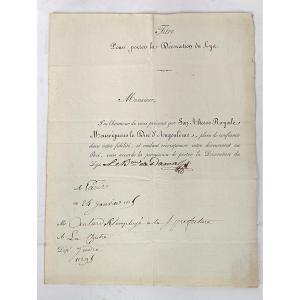 Titre
Pour porter la Décoration du Lys.
Monsieur,
J'ai l'honneur de vous prévenir que Son Altesse Royale
Monseigneur le Duc d'Angoulême, plein de confiance
dans votre fidélité, et voulant récompenser votre dévouement au
Roi, vous accorde la permission de porter la Décoration du
Lys. Le Bon de Damas
A Paris
24 janvier
Mr employé à la préfecture
A La Châtre
Dept Indre